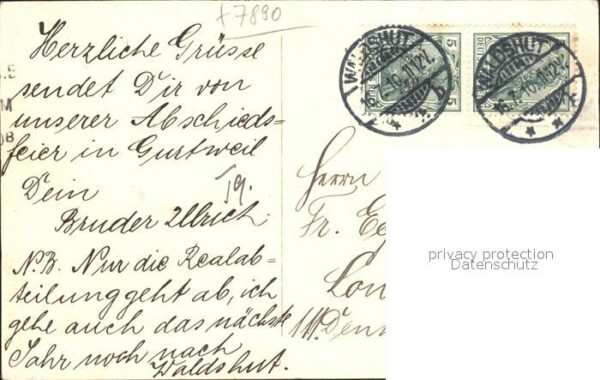 +7890
Herzliche Grüsse
sendet Dir von
unserer Abschieds-
feier in Gurtweil
Dein
Bruder Ullrich
N.B. Nur die Realab-
teilung geht ab, ich
gehe auch das nächste
Jahr noch nach
Waldshut.
WALDSHUT
16.7.10.11-12V.
* b
5
5
WALDSHUT
16.7.10.11-12V.
Herrn
Fr.
privacy protection
Datenschutz